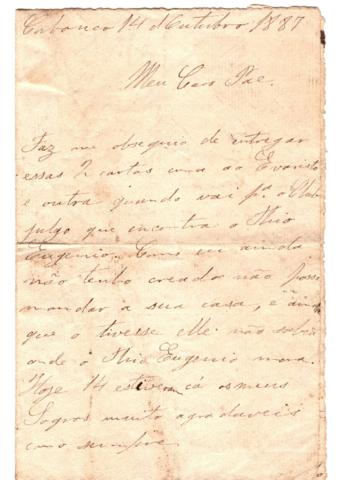 14 d'Outubro 1887
Meu Caro Pae.
Faz me obsequio de entregar
essas 2 cartas uma ao Evaristo
e outra quando vai pª o Club
julgo que encontra o Thio
Eugenio. Como eu ainda
não tenho creado não posso
mandar a sua casa, e ainda
que o tivesse elle não sabia
onde o Thio Eugenio mora.
Hoje 14 estiveram cá os meus
Sogros muito agradaveis
como sempre